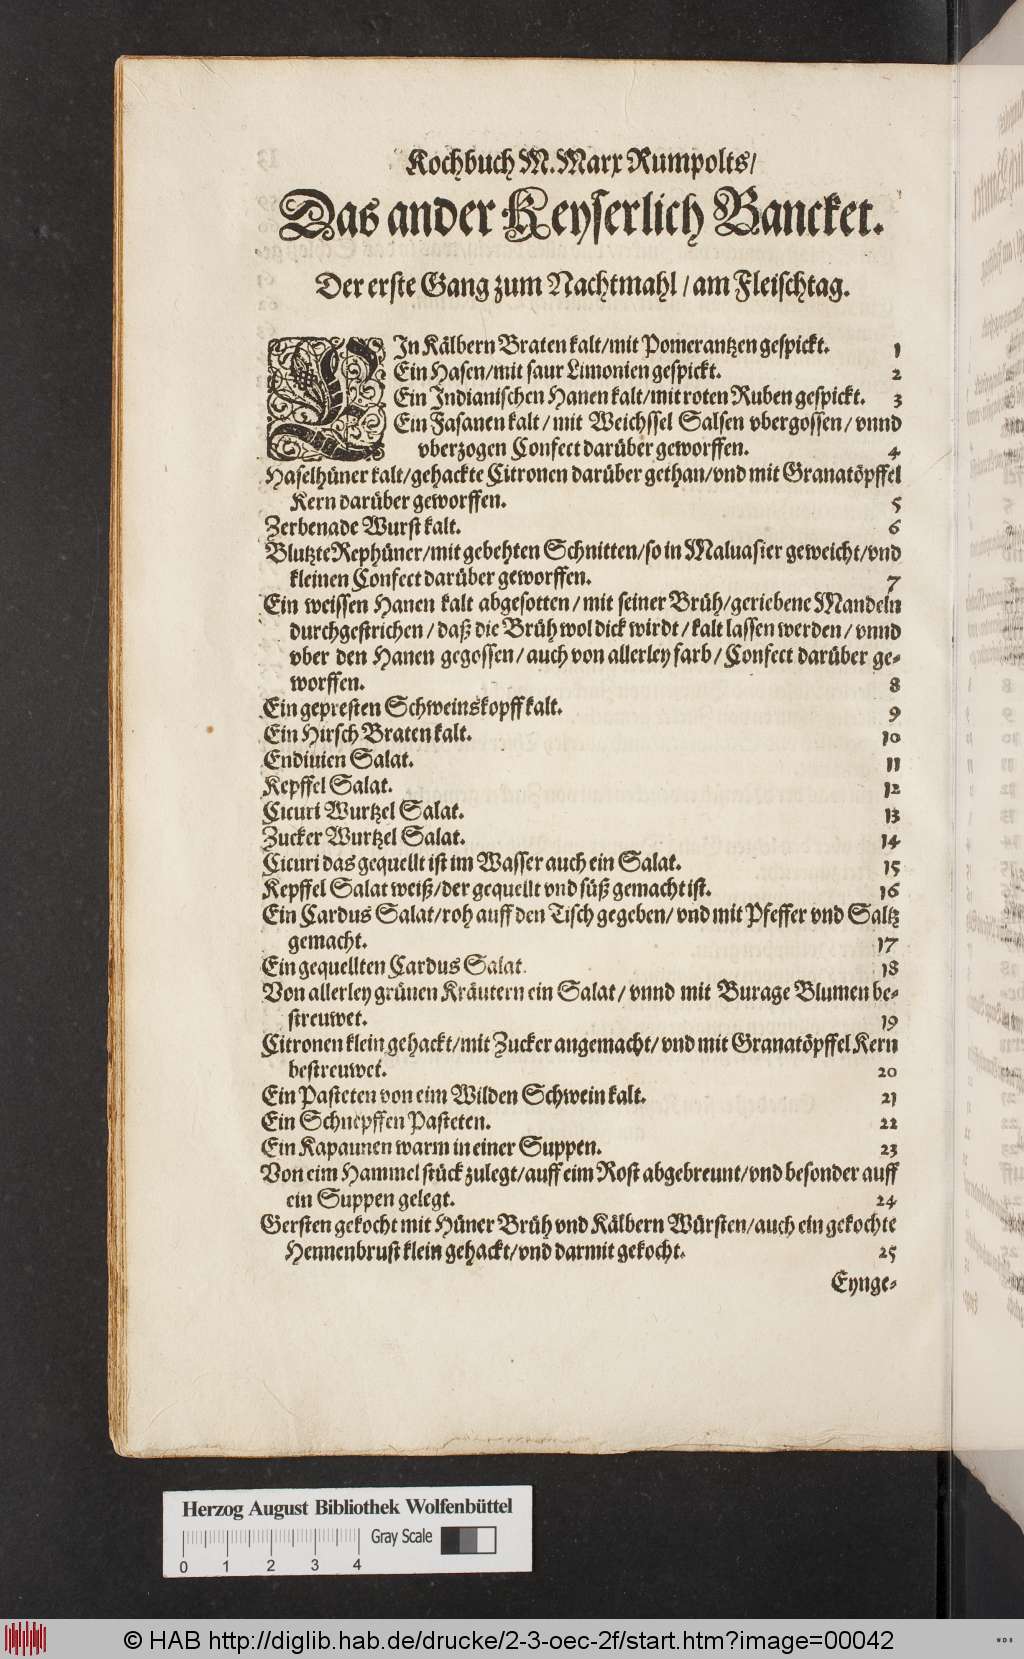 Kochbuch M. Marx Rumpolts/
Das ander Keyserlich Bancket.
Der erste Gang zum Nachtmahl / am Fleischtag.
EIn Kälbern Braten kalt/mit Pomerantzen gespickt. 1
Ein Hasen/mit saur Limonien gespickt. 2
Ein Indianischen Hanen kalt/mit roten Ruben gespickt. 3
Ein Fasanen kalt / mit Weichssel Salsen vbergossen / vnnd
vberzogen Confect darüber geworffen. 4
Haselhüner kalt/gehackte Citronen darüber gethan/vnd mit Granatöpffel
Kern darüber geworffen. 5
Zerbenade Wurst kalt. 6
Blutzte Rephüner/mit gebehten Schnitten/so in Maluasier geweicht/vnd
kleinen Confect darüber geworffen. 7
Ein weissen Hanen kalt abgesotten / mit seiner Brüh/geriebene Mandeln
durchgestrichen / daß die Brüh wol dick wirdt / kalt lassen werden / vnnd
vber den Hanen gegossen / auch von allerley farb / Confect darüber ge-
worffen. 8
Ein gepresten Schweinskopff kalt. 9
Ein Hirsch Braten kalt. 10
Endiuien Salat. 11
Kepffel Salat. 12
Cicuri Wurtzel Salat. 13
Zucker Wurtzel Salat. 14
Cicuri das gequellt ist im Wasser auch ein Salat. 15
Kepffel Salat weiß/der gequellt vnd süß gemacht ist. 16
Ein Cardus Salat/roh auff den Tisch gegeben/ vnd mit Pfeffer vnd Saltz
gemacht. 17
Ein gequellten Cardus Salat. 18
Von allerley grünen Kräutern ein Salat / vnnd mit Burage Blumen be-
streuwet. 19
Citronen klein gehackt/mit Zucker angemacht/ vnd mit Granatöpffel Kern
bestreuwet. 20
Ein Pasteten von eim Wilden Schwein kalt. 21
Ein Schnepffen Pasteten. 22
Ein Kapaunen warm in einer Suppen. 23
Von eim Hammel stück zulegt/auff eim Rost abgebreunt/vnd besonder auff
ein Suppen gelegt. 24
Gersten gekocht mit Hüner Brüh vnd Kälbern Würsten/auch ein gekochte
Hennenbrust klein gehackt/vnd darmit gekocht. 25
Eynge-
Herzog August Bibliothek Wolfenbüttel
Gray Scale
0 1 2 3 4
© HAB http://diglib.hab.de/drucke/2-3-oec-2f/start.htm?image=00042